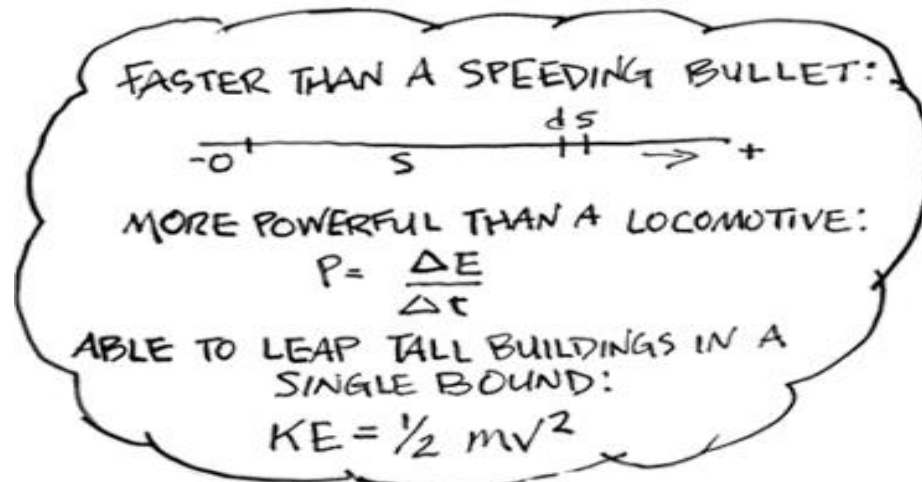 FASTER THAN A SPEEDING BULLET:
ds
-0 S +
MORE POWERFUL THAN A LOCOMOTIVE:
P= ΔE
Δt
ABLE TO LEAP TALL BUILDINGS IN A
SINGLE BOUND:
KE = 1/2 mv²